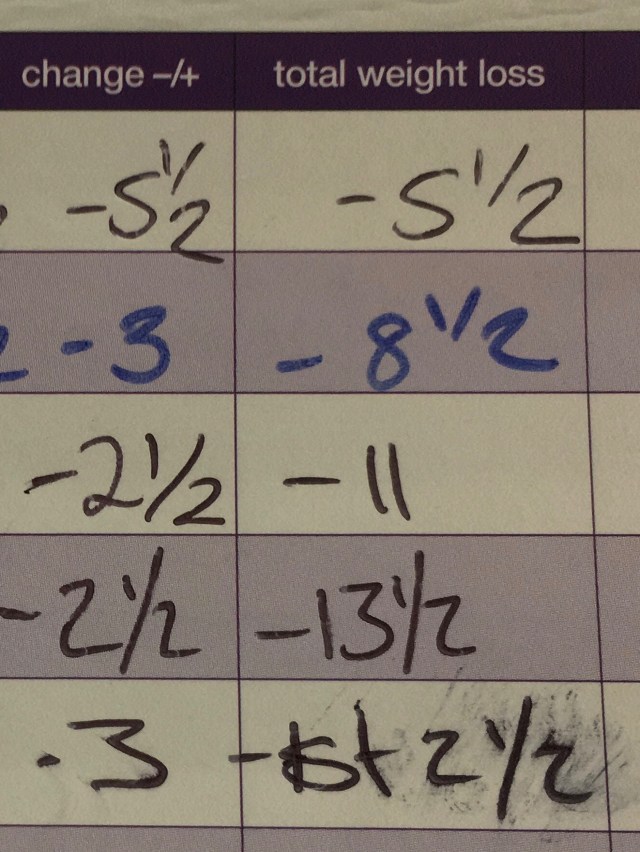 change -/+ total weight loss
-5 1/2 -5 1/2
-3 -8 1/2
-2 1/2 -11
-2 1/2 -13 1/2
-3 -1st 2 1/2